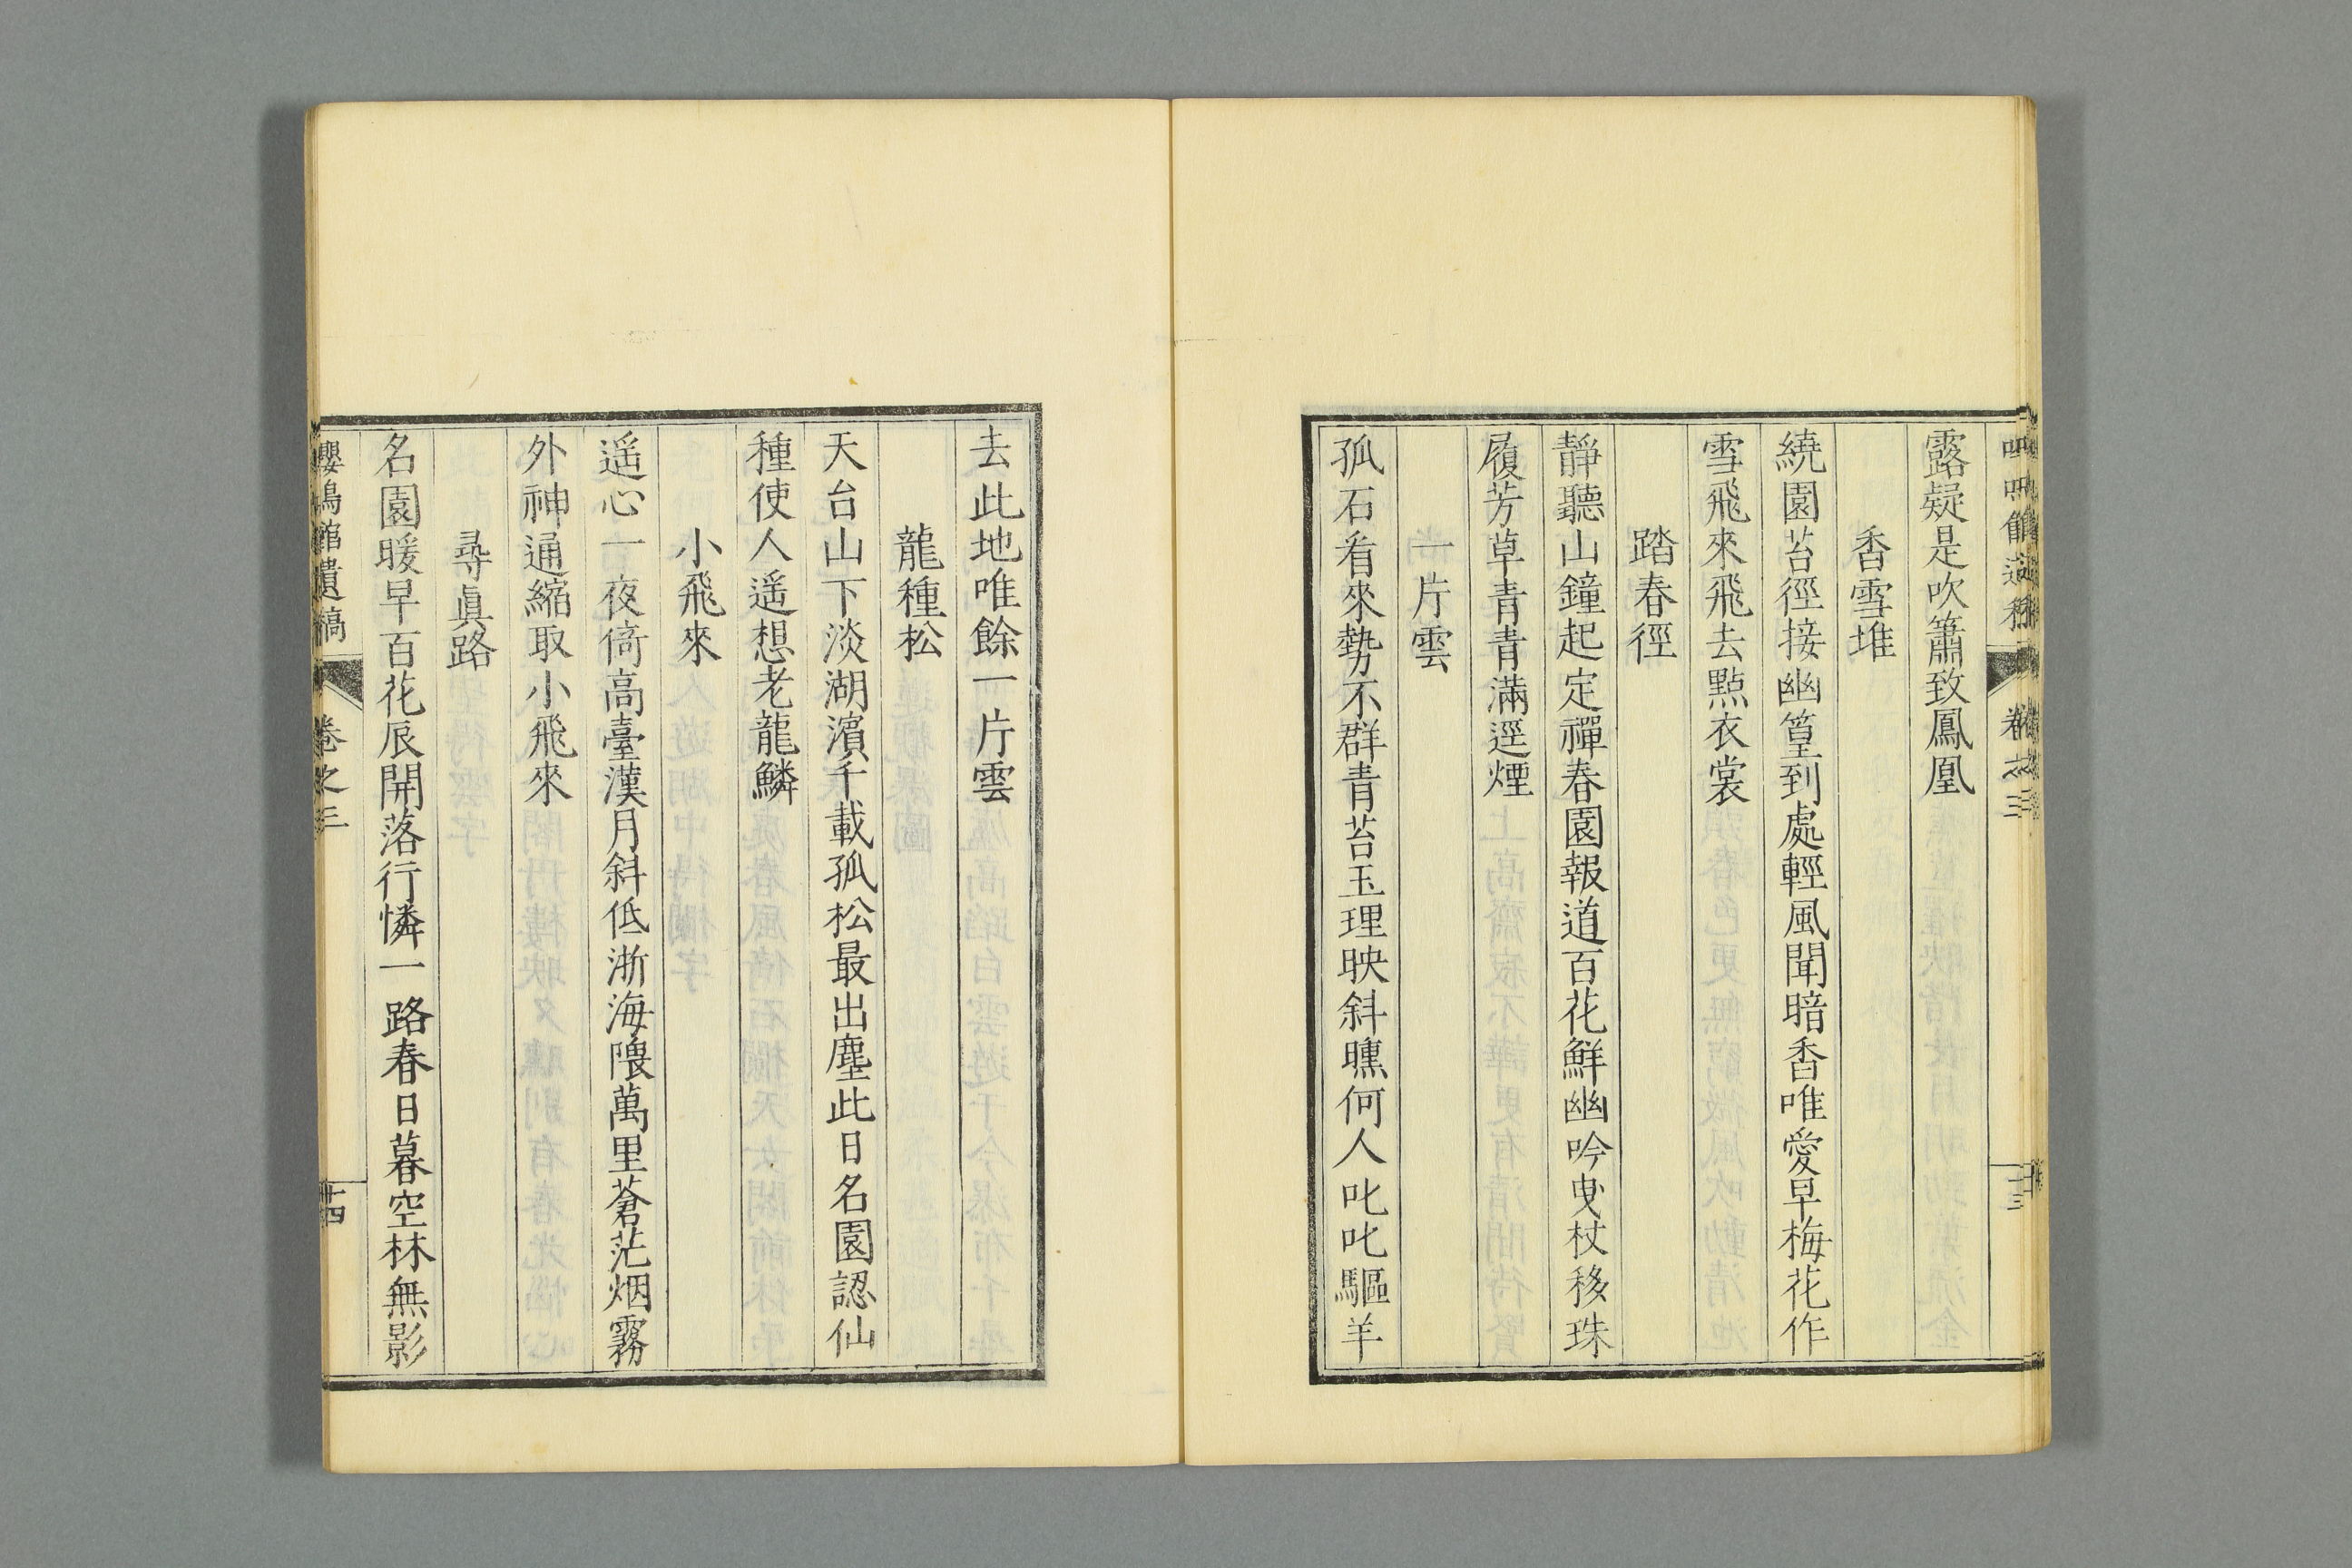 露疑是吹簫致鳳凰
香雪堆
繞園苔徑接幽篁到處輕風聞暗香唯愛早梅花作
雪飛來飛去點衣裳
踏春徑
靜聽山鐘起定禪春園報道百花鮮幽吟曳杖移珠
履芳草青青滿逕煙
一片雲
孤石看來勢不群青苔玉理映斜曛何人叱叱驅羊
去此地唯餘一片雲
龍種松
天台山下淡湖濱千載孤松最出塵此日名園認仙
種使人遥想老龍鱗
小飛來
遥心一夜倚高臺漢月斜低浙海隈萬里蒼茫烟霧
外神通縮取小飛來
尋眞路
名園暖早百花辰開落行憐一路春日暮空林無影
嚶鳴館遺稿 卷之三 十四